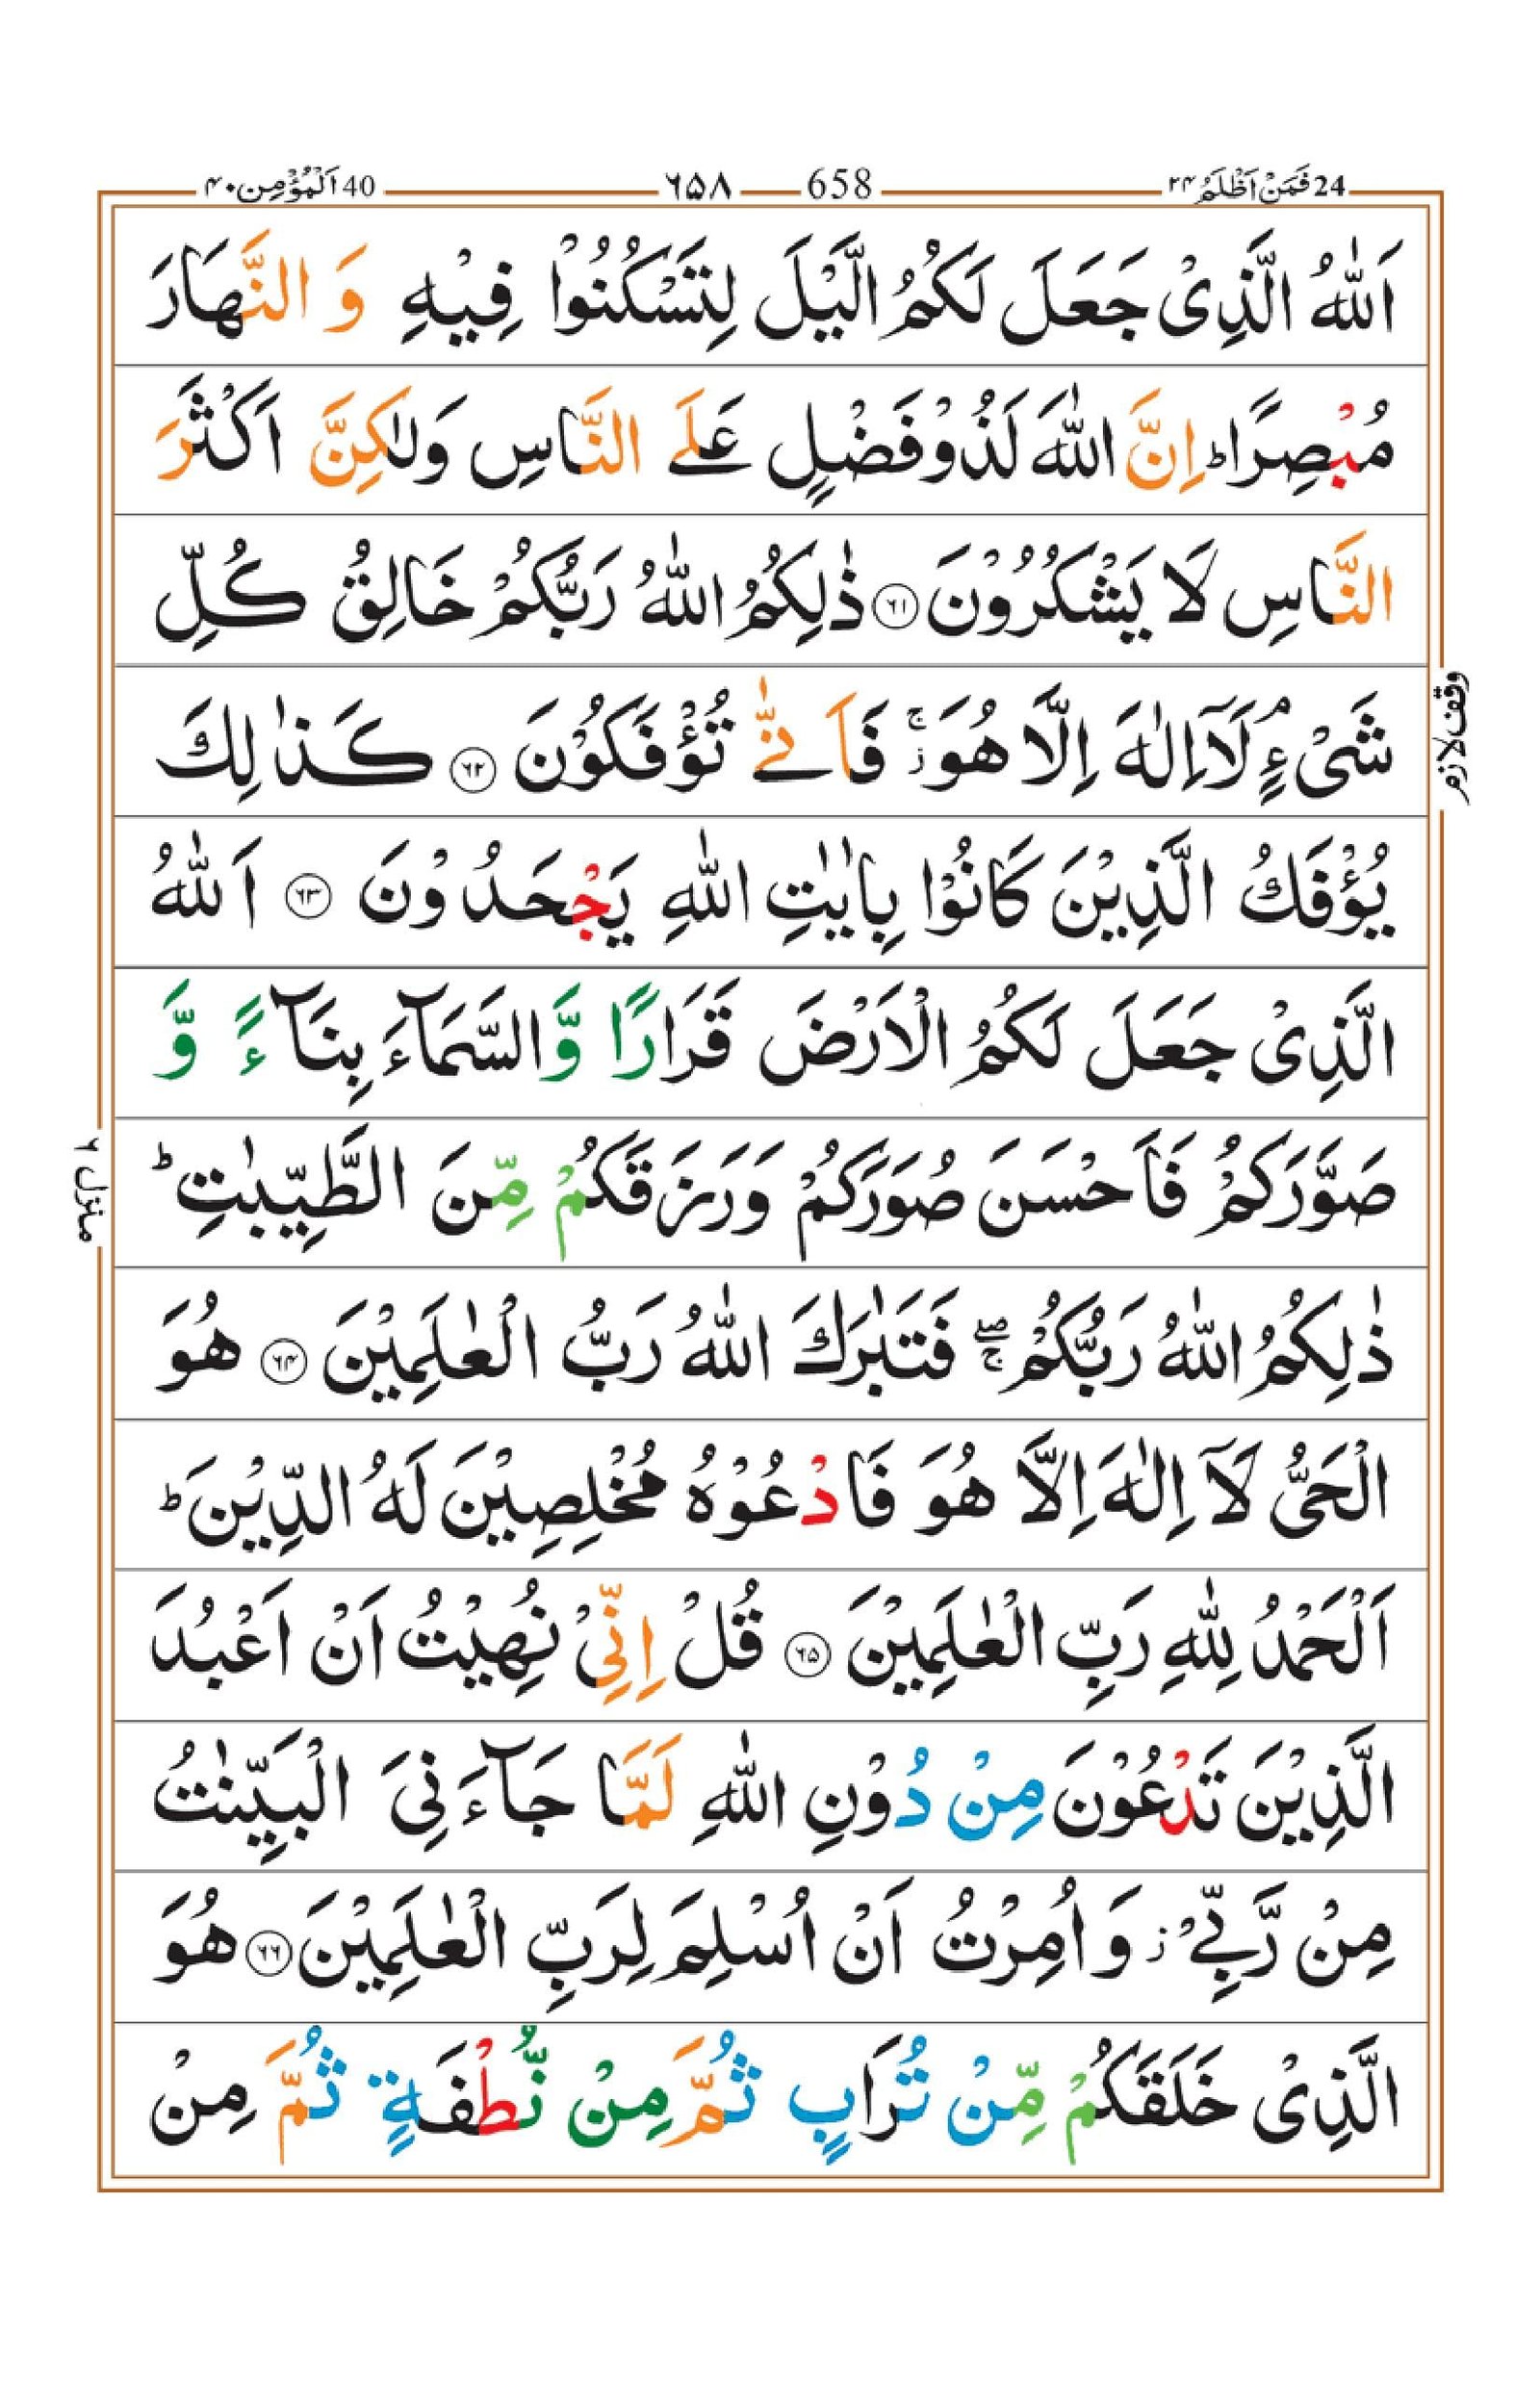 24 فَمَنْ اَظْلَمُ ۲۴
658 ۶۵۸
40 اَلْمُؤْمِن ۴۰
اَللّٰهُ الَّذِیْ جَعَلَ لَكُمُ الَّیْلَ لِتَسْكُنُوْا فِیْهِ وَ النَّهَارَ
مُبْصِرًا ؕ اِنَّ اللّٰهَ لَذُوْ فَضْلٍ عَلَی النَّاسِ وَلٰكِنَّ اَكْثَرَ
النَّاسِ لَا یَشْكُرُوْنَ ۶۱ ذٰلِكُمُ اللّٰهُ رَبُّكُمْ خَالِقُ كُلِّ
شَیْءٍ ۘ لَاۤ اِلٰهَ اِلَّا هُوَ ۚ ز فَاَنّٰی تُؤْفَكُوْنَ ۶۲ كَذٰلِكَ
وقف لازم
یُؤْفَكُ الَّذِیْنَ كَانُوْا بِاٰیٰتِ اللّٰهِ یَجْحَدُوْنَ ۶۳ اَللّٰهُ
الَّذِیْ جَعَلَ لَكُمُ الْاَرْضَ قَرَارًا وَّالسَّمَآءَ بِنَآءً وَّ
صَوَّرَكُمْ فَاَحْسَنَ صُوَرَكُمْ وَرَزَقَكُمْ مِّنَ الطَّیِّبٰتِ ؕ
منزل ۶
ذٰلِكُمُ اللّٰهُ رَبُّكُمْ ۖۚ فَتَبٰرَكَ اللّٰهُ رَبُّ الْعٰلَمِیْنَ ۶۴ هُوَ
الْحَیُّ لَاۤ اِلٰهَ اِلَّا هُوَ فَادْعُوْهُ مُخْلِصِیْنَ لَهُ الدِّیْنَ ؕ
اَلْحَمْدُ لِلّٰهِ رَبِّ الْعٰلَمِیْنَ ۶۵ قُلْ اِنِّیْ نُهِیْتُ اَنْ اَعْبُدَ
الَّذِیْنَ تَدْعُوْنَ مِنْ دُوْنِ اللّٰهِ لَمَّا جَآءَنِیَ الْبَیِّنٰتُ
مِنْ رَّبِّیْ ز وَاُمِرْتُ اَنْ اُسْلِمَ لِرَبِّ الْعٰلَمِیْنَ ۶۶ هُوَ
الَّذِیْ خَلَقَكُمْ مِّنْ تُرَابٍ ثُمَّ مِنْ نُّطْفَةٍ ثُمَّ مِنْ